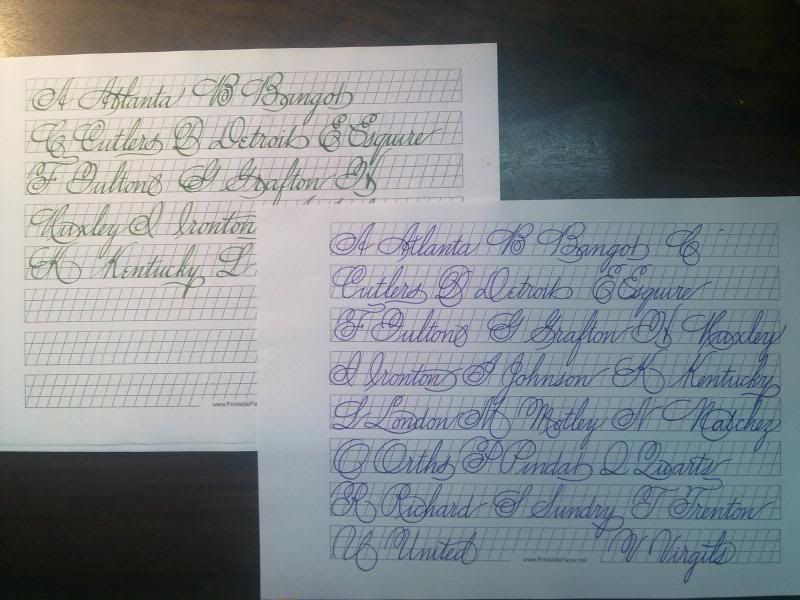 A Atlanta B Bangot
C Cutlers D Detroit E Esquire
F Fultons G Grafton H
Huxley I Ironton
K Kentucky L
www.PrintablePa
A Atlanta B Bangot C
Cutlers D Detroit E Esquire
F Fultons G Grafton H Huxley
I Ironton J Johnson K Kentucky
L London M Motley N Natchez
O Orths P Pindat Q Quarts
R Richard S Sundry T Trenton
U United V Virgils
www.PrintablePaper.net